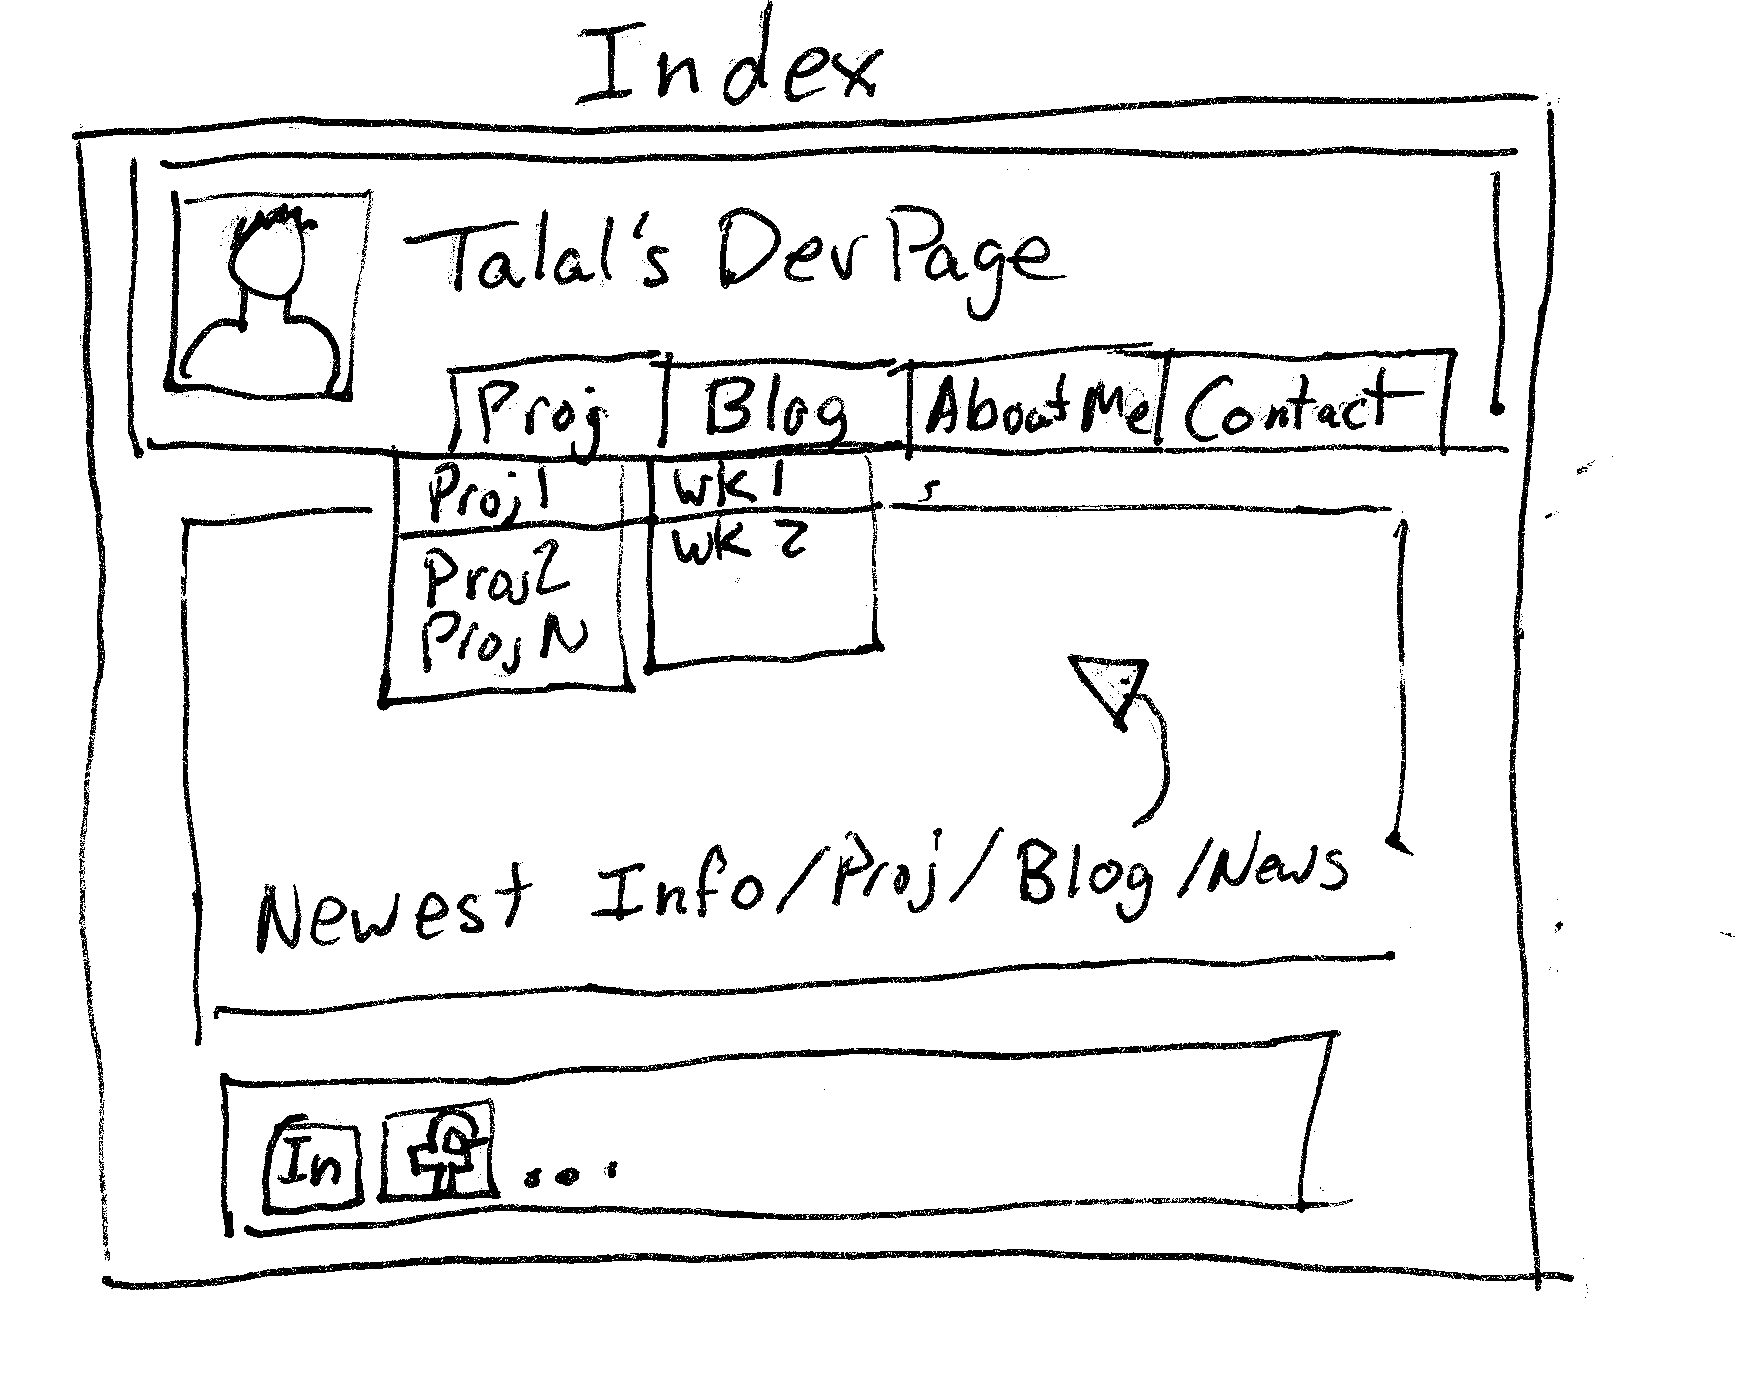 Index
Talal's Dev Page
Proj Blog About Me Contact
Proj1 wk 1
Proj2 wk 2
Proj N
Newest Info/Proj/Blog/News
In ...